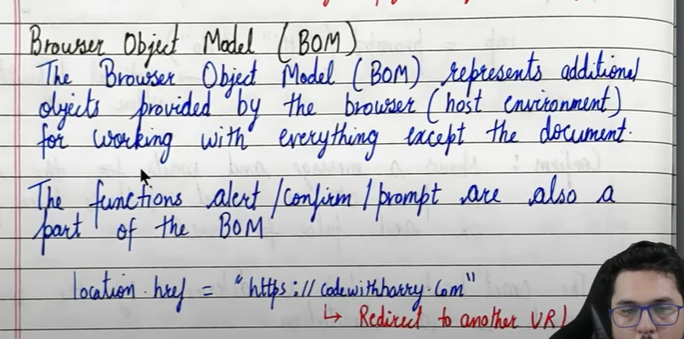 Browser Object Model (BOM)
The Browser Object Model (BOM) represents additional
objects provided by the browser (host environment)
for working with everything except the document.
The functions alert/confirm/prompt are also a
part of the BOM
location.href = "https://codewithharry.com"
↳ Redirect to another URL